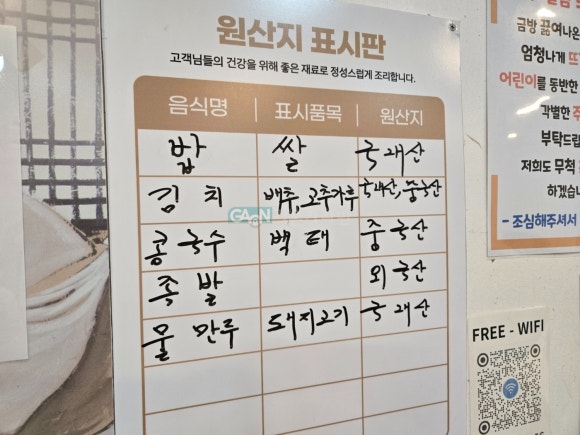 원산지 표시판
고객님들의 건강을 위해 좋은 재료로 정성스럽게 조리합니다.
음식명 표시품목 원산지
밥 쌀 국내산
김치 배추, 고추가루 국내산, 중국산
콩국수 백태 중국산
족발 외국산
물만두 돼지고기 국내산
GAON
금방 끓여나온
엄청나게 뜨
어린이를 동반한
각별한 주
부탁드립
저희도 무척
하겠습니
- 조심해주셔서
FREE - WIFI